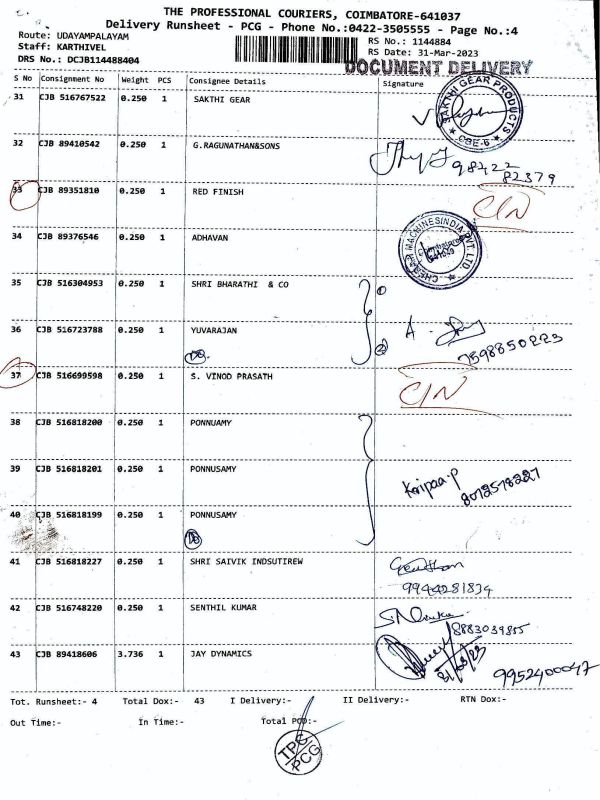 THE PROFESSIONAL COURIERS, COIMBATORE-641037
Delivery Runsheet - PCG - Phone No.:0422-3505555 - Page No.:4
Route: UDAYAMPALAYAM
Staff: KARTHIVEL
DRS No.: DCJB114488404
RS No.: 1144884
RS Date: 31-Mar-2023
DOCUMENT DELIVERY
S No Consignment No Weight PCS Consignee Details Signature
31 CJB 516767522 0.250 1 SAKTHI GEAR
SAKTHI GEAR PRODUCTS
CBE-6
32 CJB 89410542 0.250 1 G.RAGUNATHAN&SONS
98422
82379
33 CJB 89351810 0.250 1 RED FINISH C/N
34 CJB 89376546 0.250 1 ADHAVAN
CHERAN MACHINES INDIA PVT. LTD.
35 CJB 516304953 0.250 1 SHRI BHARATHI & CO
36 CJB 516723788 0.250 1 YUVARAJAN
7598850223
37 CJB 516699598 0.250 1 S. VINOD PRASATH C/N
38 CJB 516818200 0.250 1 PONNUAMY
39 CJB 516818201 0.250 1 PONNUSAMY
8012518227
40 CJB 516818199 0.250 1 PONNUSAMY
41 CJB 516818227 0.250 1 SHRI SAIVIK INDSUTIREW
9944281834
42 CJB 516748220 0.250 1 SENTHIL KUMAR
8883039855
43 CJB 89418606 3.736 1 JAY DYNAMICS
9952400047
Tot. Runsheet:- 4 Total Dox:- 43 I Delivery:- II Delivery:- RTN Dox:-
Out Time:- In Time:- Total POD:-
TPC
PCG